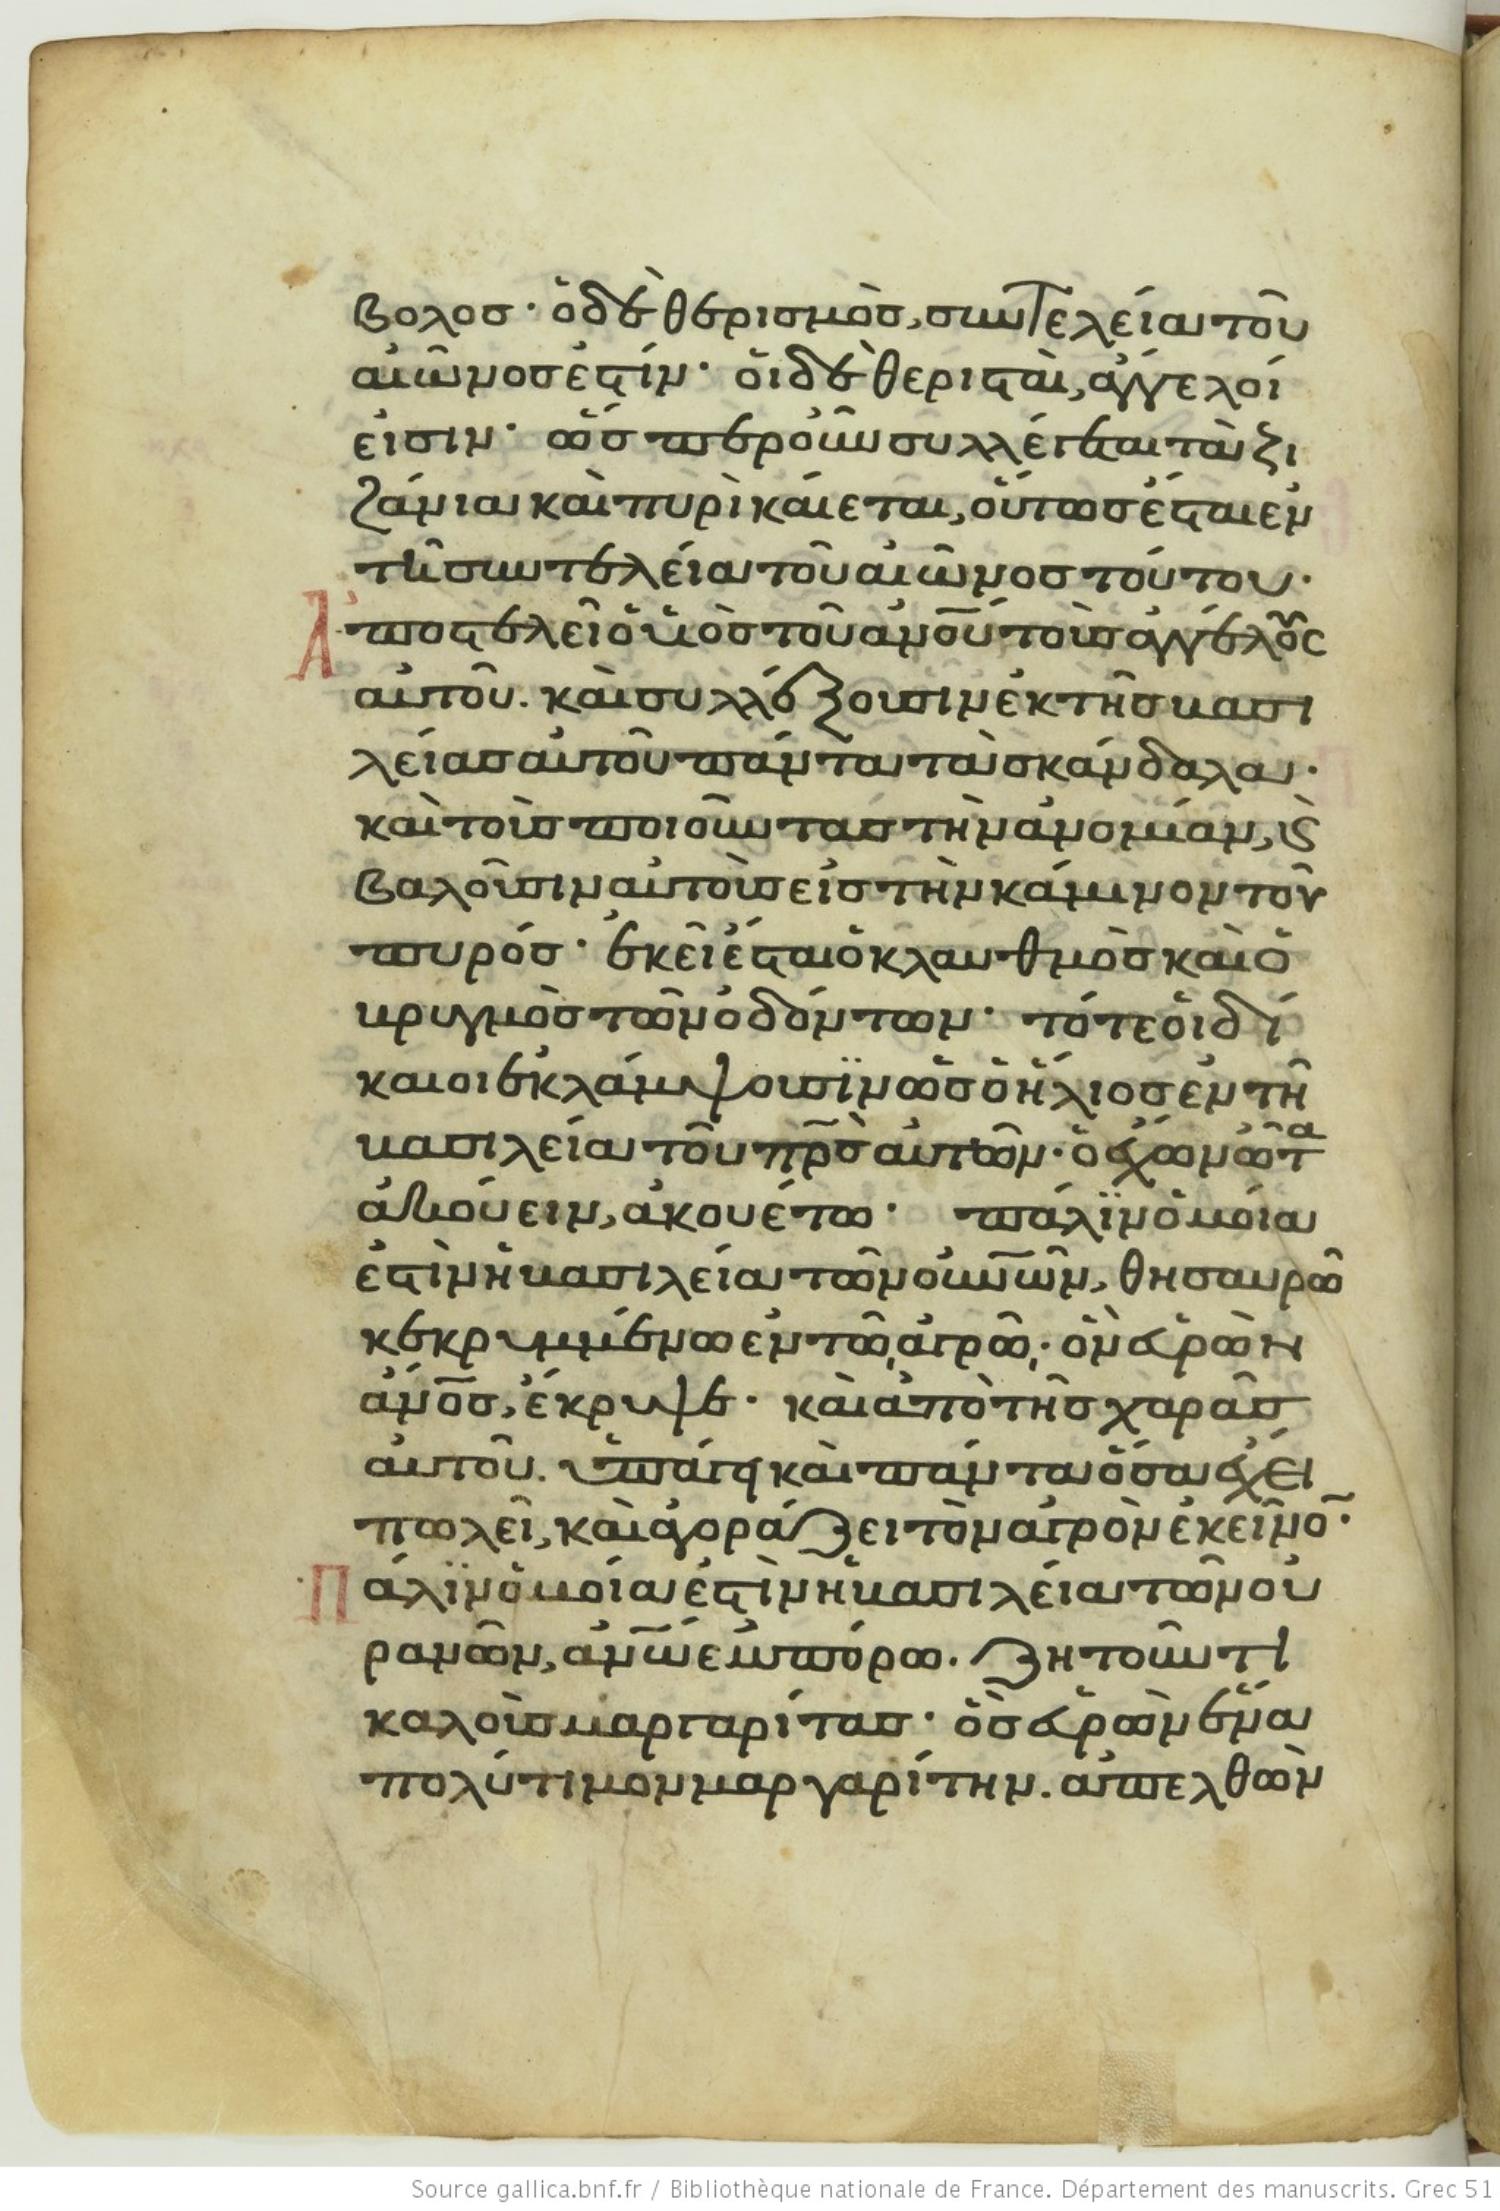 βολοσ· ὁ δὲ θερισμὸσ, συντελεία τοῦ
αἰῶνοσ ἐστίν· ὁι δὲ θερισταὶ, ἄγγελοί
εἰσιν· ὥσπερ οὖν συλλέγεται τὰ ζι
ζάνια καὶ πυρὶ κάιεται, ὅυτωσ ἔσται ἐν
τῆ συντελεία τοῦ αἰῶνοσ τούτου·
Ἀποστελεῖ ὁ ὑιὸσ τοῦ ἀν̅ο̅υ̅ τοὺσ ἀγγέλους
αὐτοῦ. καὶ συλλέξουσιν ἐκ τῆσ βασι
λείασ αὐτοῦ πάντα τὰ σκάνδαλα·
καὶ τοὺσ ποιοῦντασ τὴν ἀνομίαν, ϗ̀
βαλοῦσιν αὐτοὺσ εἰσ τὴν κάμινον τοῦ
πυρόσ· ἐκεῖ ἔσται ὁ κλαυθμὸσ καὶ ὁ
βρυγμὸσ τῶν ὀδόντων· τότε ὁι δί
καιοι ἐκλάμψουσϊν ὡσ ὁ ἥλιοσ ἐν τῆ
βασιλεία τοῦ π̅ρ̅σ̅ αὐτῶν· ὁ ἔχων ὦτα
ἀκούειν, ἀκουέτω· πάλϊν ὁμοία
ἐστὶν ἡ βασιλεία τῶν ο̅υ̅ν̅ῶν, θησαυρῶ
κεκρυμμένω ἐν τῶ ἀγρῶ· ὃν ἑυρὼν
ἄν̅ο̅σ̅, ἔκρυψε· καὶ ἀπὸ τῆσ χαρᾶσ
αὐτοῦ. ὑπάγει καὶ πάντα ὅσα ἔχει
πωλεῖ, καὶ ἀγοράζει τὸν ἀγρὸν ἐκεῖνο̅·
Πάλϊν ὁμοία ἐστὶν ἡ βασιλεία τῶν οὐ
ρανῶν, ἀν̅ω̅ ἐμπόρω. ζητοῦντι
καλοὺσ μαργαρίτασ· ὃσ ἑυρὼν ἕνα
πολύτιμον μαργαρίτην. ἀπελθὼν
Source gallica.bnf.fr / Bibliothèque nationale de France. Département des manuscrits. Grec 51